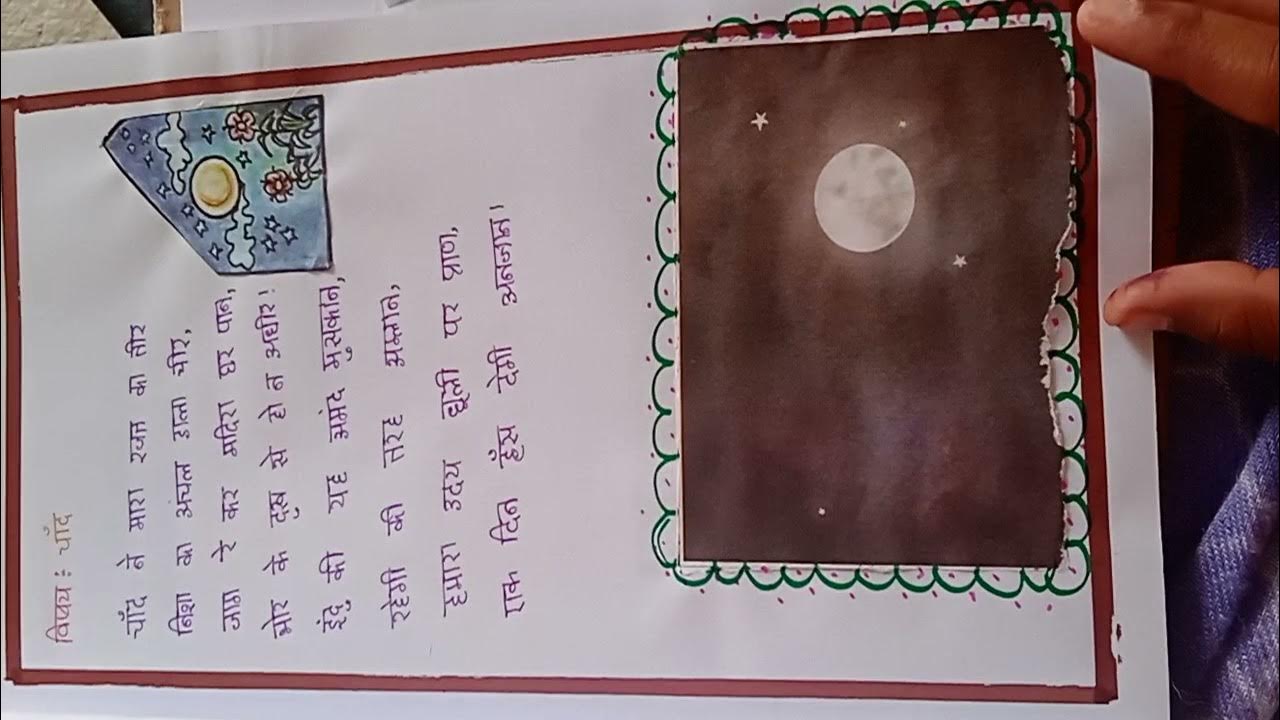 विषय : चाँद
चाँद ने मारा रजत का तीर
निशा का अंचल डाला चीर,
जाग रे कर मदिरा घर पान,
भोर के दुख से हो न अधीर!
इंदु की यह अमंद मुसकान,
रहेगी की तरह अम्लान,
हमारा उदय धूली पर प्राण,
एक दिन हँस देगी अनजान।